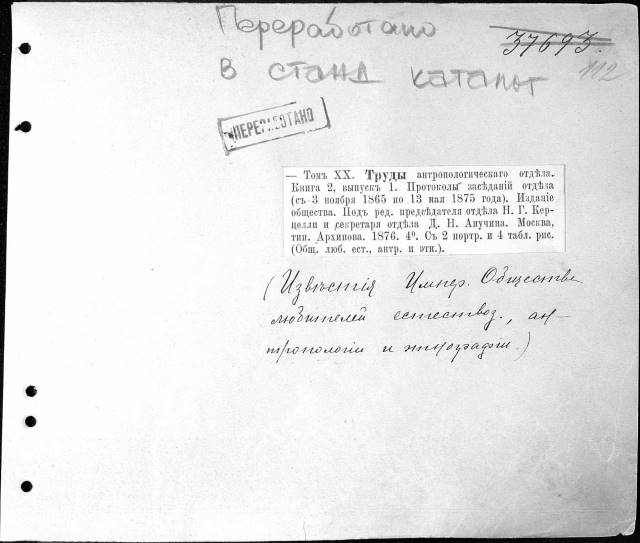 Переработано
37693.
в станд каталог
112
ПЕРЕРАБОТАНО
— Томъ XX. Труды антропологическаго отдѣла.
Книга 2, выпускъ 1. Протоколы засѣданій отдѣла
(съ 3 ноября 1865 по 13 мая 1875 года). Изданіе
общества. Подъ ред. предсѣдателя отдѣла Н. Г. Кер-
целли и секретаря отдѣла Д. Н. Анучина. Москва,
тип. Архипова. 1876. 4⁰. Съ 2 портр. и 4 табл. рис.
(Общ. люб. ест., антр. и этн.).
(Извѣстія Импер. Общества
любителей естествоз., ан-
тропологіи и этнографіи.)